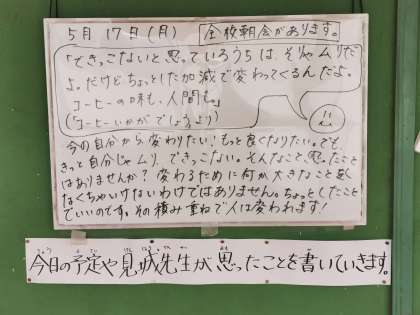 5月17日(月) 全校朝会があります。
「できっこないと思っているうちは、そりゃムリだ
よ。だけどちょっとした加減で変わってくるんだよ。
コーヒーの味も、人間も。」
(「コーヒーいかがでしょう」より)
今の自分から変わりたい!もっと良くなりたい。でも、
きっと自分じゃムリ、できっこない。そんなこと、思ったこと
はありませんか?変わるために何か大きなことをし
なくちゃいけないわけではありません。ちょっとしたこと
でいいのです。その積み重ねで人は変われます!
今日の予定や見城先生が思ったことを書いていきます。